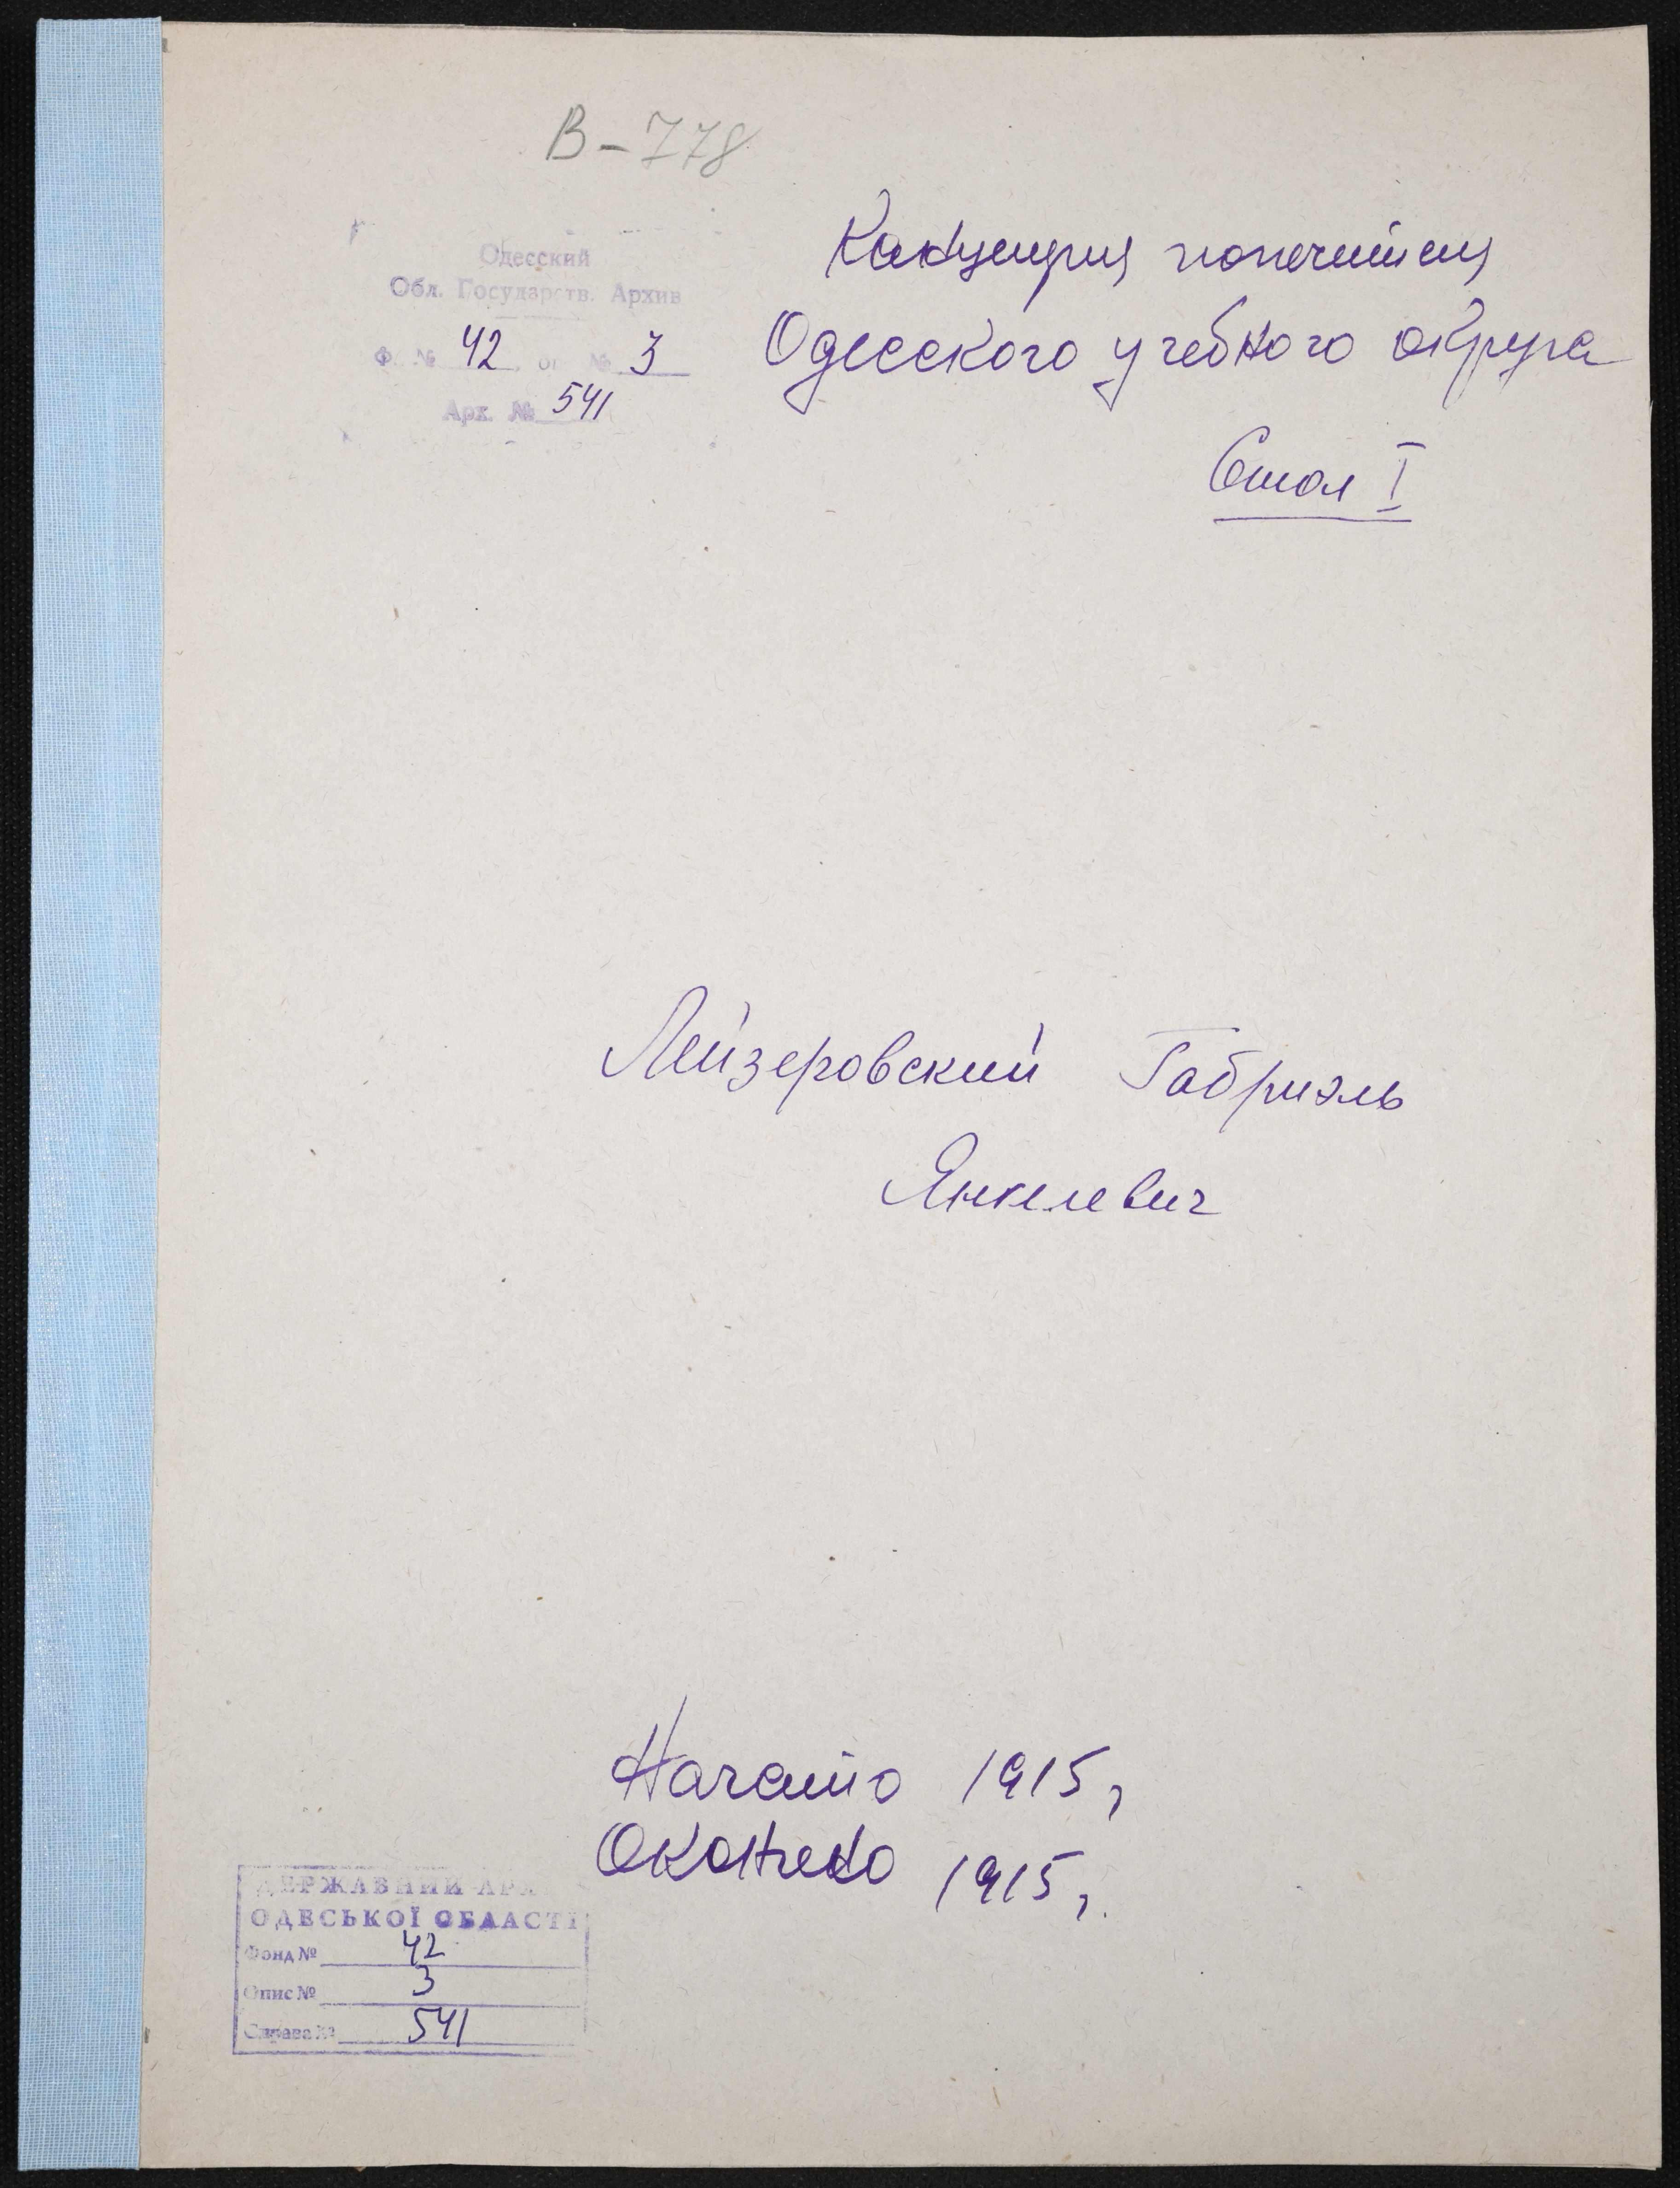 В-778
Одесский
Обл. Государств. Архив
Ф. № 42 оп № 3
Арх. № 541
Канцелярия попечителя
Одесского учебного округа
Стол I
Лейзеровский Габриэль
Янкелевич
Начато 1915 г.
Окончено 1915 г.
ДЕРЖАВНИЙ АРХ
ОДЕСЬКОЇ ОБЛАСТІ
Фонд № 42
Опис № 3
Справа № 541